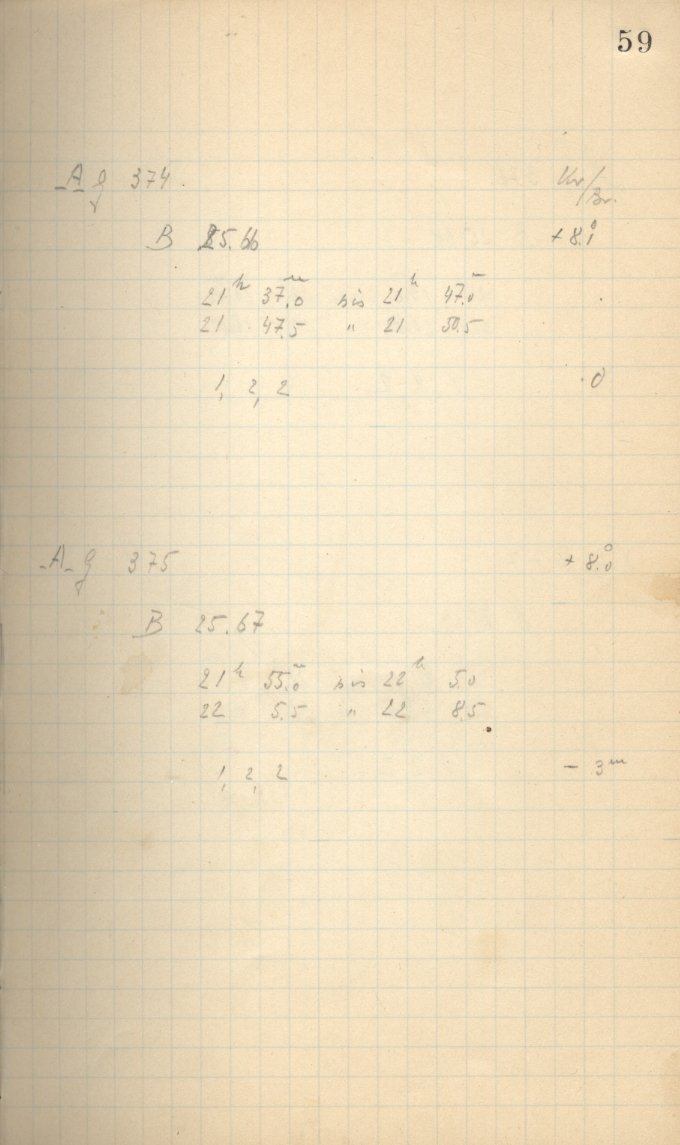 59
A g 374. Kr/Br.
B 25.66 + 8.°1
21ʰ 37.ᵐ0 bis 21ʰ 47.ᵐ0
21 47.5 " 21 50.5
1, 2, 2 0
A g 375 + 8.°0
B 25.67
21ʰ 55.ᵐ0 bis 22ʰ 5.0
22 5.5 " 22 8.5
1, 2, 2 - 3ᵐ